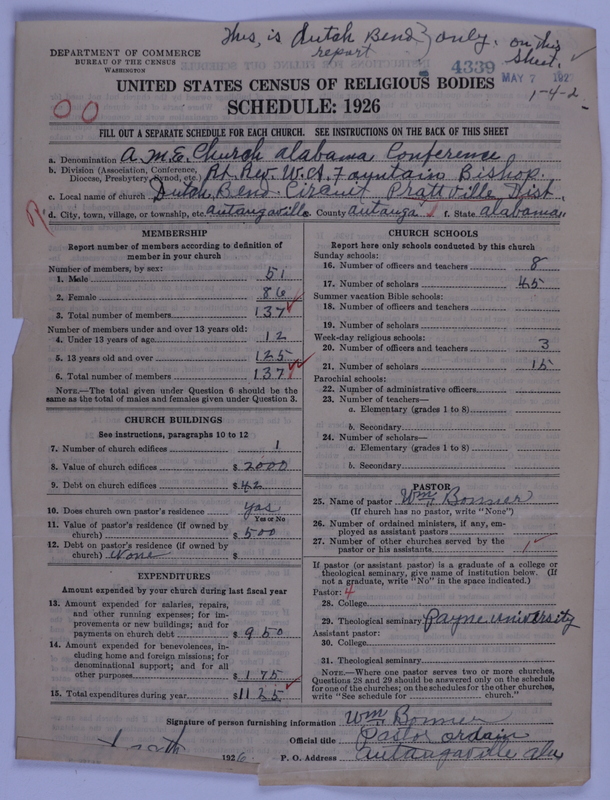 This, is Dutch Bend } only. on this
report Sheet.
DEPARTMENT OF COMMERCE
BUREAU OF THE CENSUS
WASHINGTON
4339
MAY 7 192
1-4-2
UNITED STATES CENSUS OF RELIGIOUS BODIES
SCHEDULE: 1926
OO
FILL OUT A SEPARATE SCHEDULE FOR EACH CHURCH. SEE INSTRUCTIONS ON THE BACK OF THIS SHEET
a. Denomination A. M. E. Church Alabama Conference
b. Division (Association, Conference, Diocese, Presbytery, Synod, etc.) Rt. Rev. W. A. Fountain Bishop.
c. Local name of church Dutch Bend Circuit Prattville Dist,
d. City, town, village, or township, etc. Autaugaville e. County Autauga f. State Alabama
MEMBERSHIP
Report number of members according to definition of
member in your church
Number of members, by sex:
1. Male 51
2. Female 86
3. Total number of members 137
Number of members under and over 13 years old:
4. Under 13 years of age 12
5. 13 years old and over 125
6. Total number of members 137
NOTE.—The total given under Question 6 should be the
same as the total of males and females given under Question 3.
CHURCH BUILDINGS
See instructions, paragraphs 10 to 12
7. Number of church edifices 1
8. Value of church edifices $ 2000
9. Debt on church edifices $ 42
10. Does church own pastor's residence yas
Yes or No
11. Value of pastor's residence (if owned by
church) $ 500
12. Debt on pastor's residence (if owned by
church) None $
EXPENDITURES
Amount expended by your church during last fiscal year
13. Amount expended for salaries, repairs,
and other running expenses; for im-
provements or new buildings; and for
payments on church debt $ 950
14. Amount expended for benevolences, in-
cluding home and foreign missions; for
denominational support; and for all
other purposes $ 175
15. Total expenditures during year $ 1125
CHURCH SCHOOLS
Report here only schools conducted by this church
Sunday schools:
16. Number of officers and teachers 8
17. Number of scholars 45
Summer vacation Bible schools:
18. Number of officers and teachers
19. Number of scholars
Week-day religious schools:
20. Number of officers and teachers 3
21. Number of scholars 15
Parochial schools:
22. Number of administrative officers
23. Number of teachers—
a. Elementary (grades 1 to 8)
b. Secondary
24. Number of scholars—
a. Elementary (grades 1 to 8)
b. Secondary
PASTOR
25. Name of pastor Wm Bonner
(If church has no pastor, write "None")
26. Number of ordained ministers, if any, em-
ployed as assistant pastors
27. Number of other churches served by the
pastor or his assistants 1
If pastor (or assistant pastor) is a graduate of a college or
theological seminary, give name of institution below. (If
not a graduate, write "No" in the space indicated.)
Pastor: 4
28. College
29. Theological seminary Payne University
Assistant pastor:
30. College
31. Theological seminary
NOTE.—Where one pastor serves two or more churches,
Questions 28 and 29 should be answered only on the schedule
for one of the churches; on the schedules for the other churches,
write "See schedule for church."
Signature of person furnishing information Wm Bonner
Official title Pastor ordain
1926. P. O. Address Autaugaville Ala